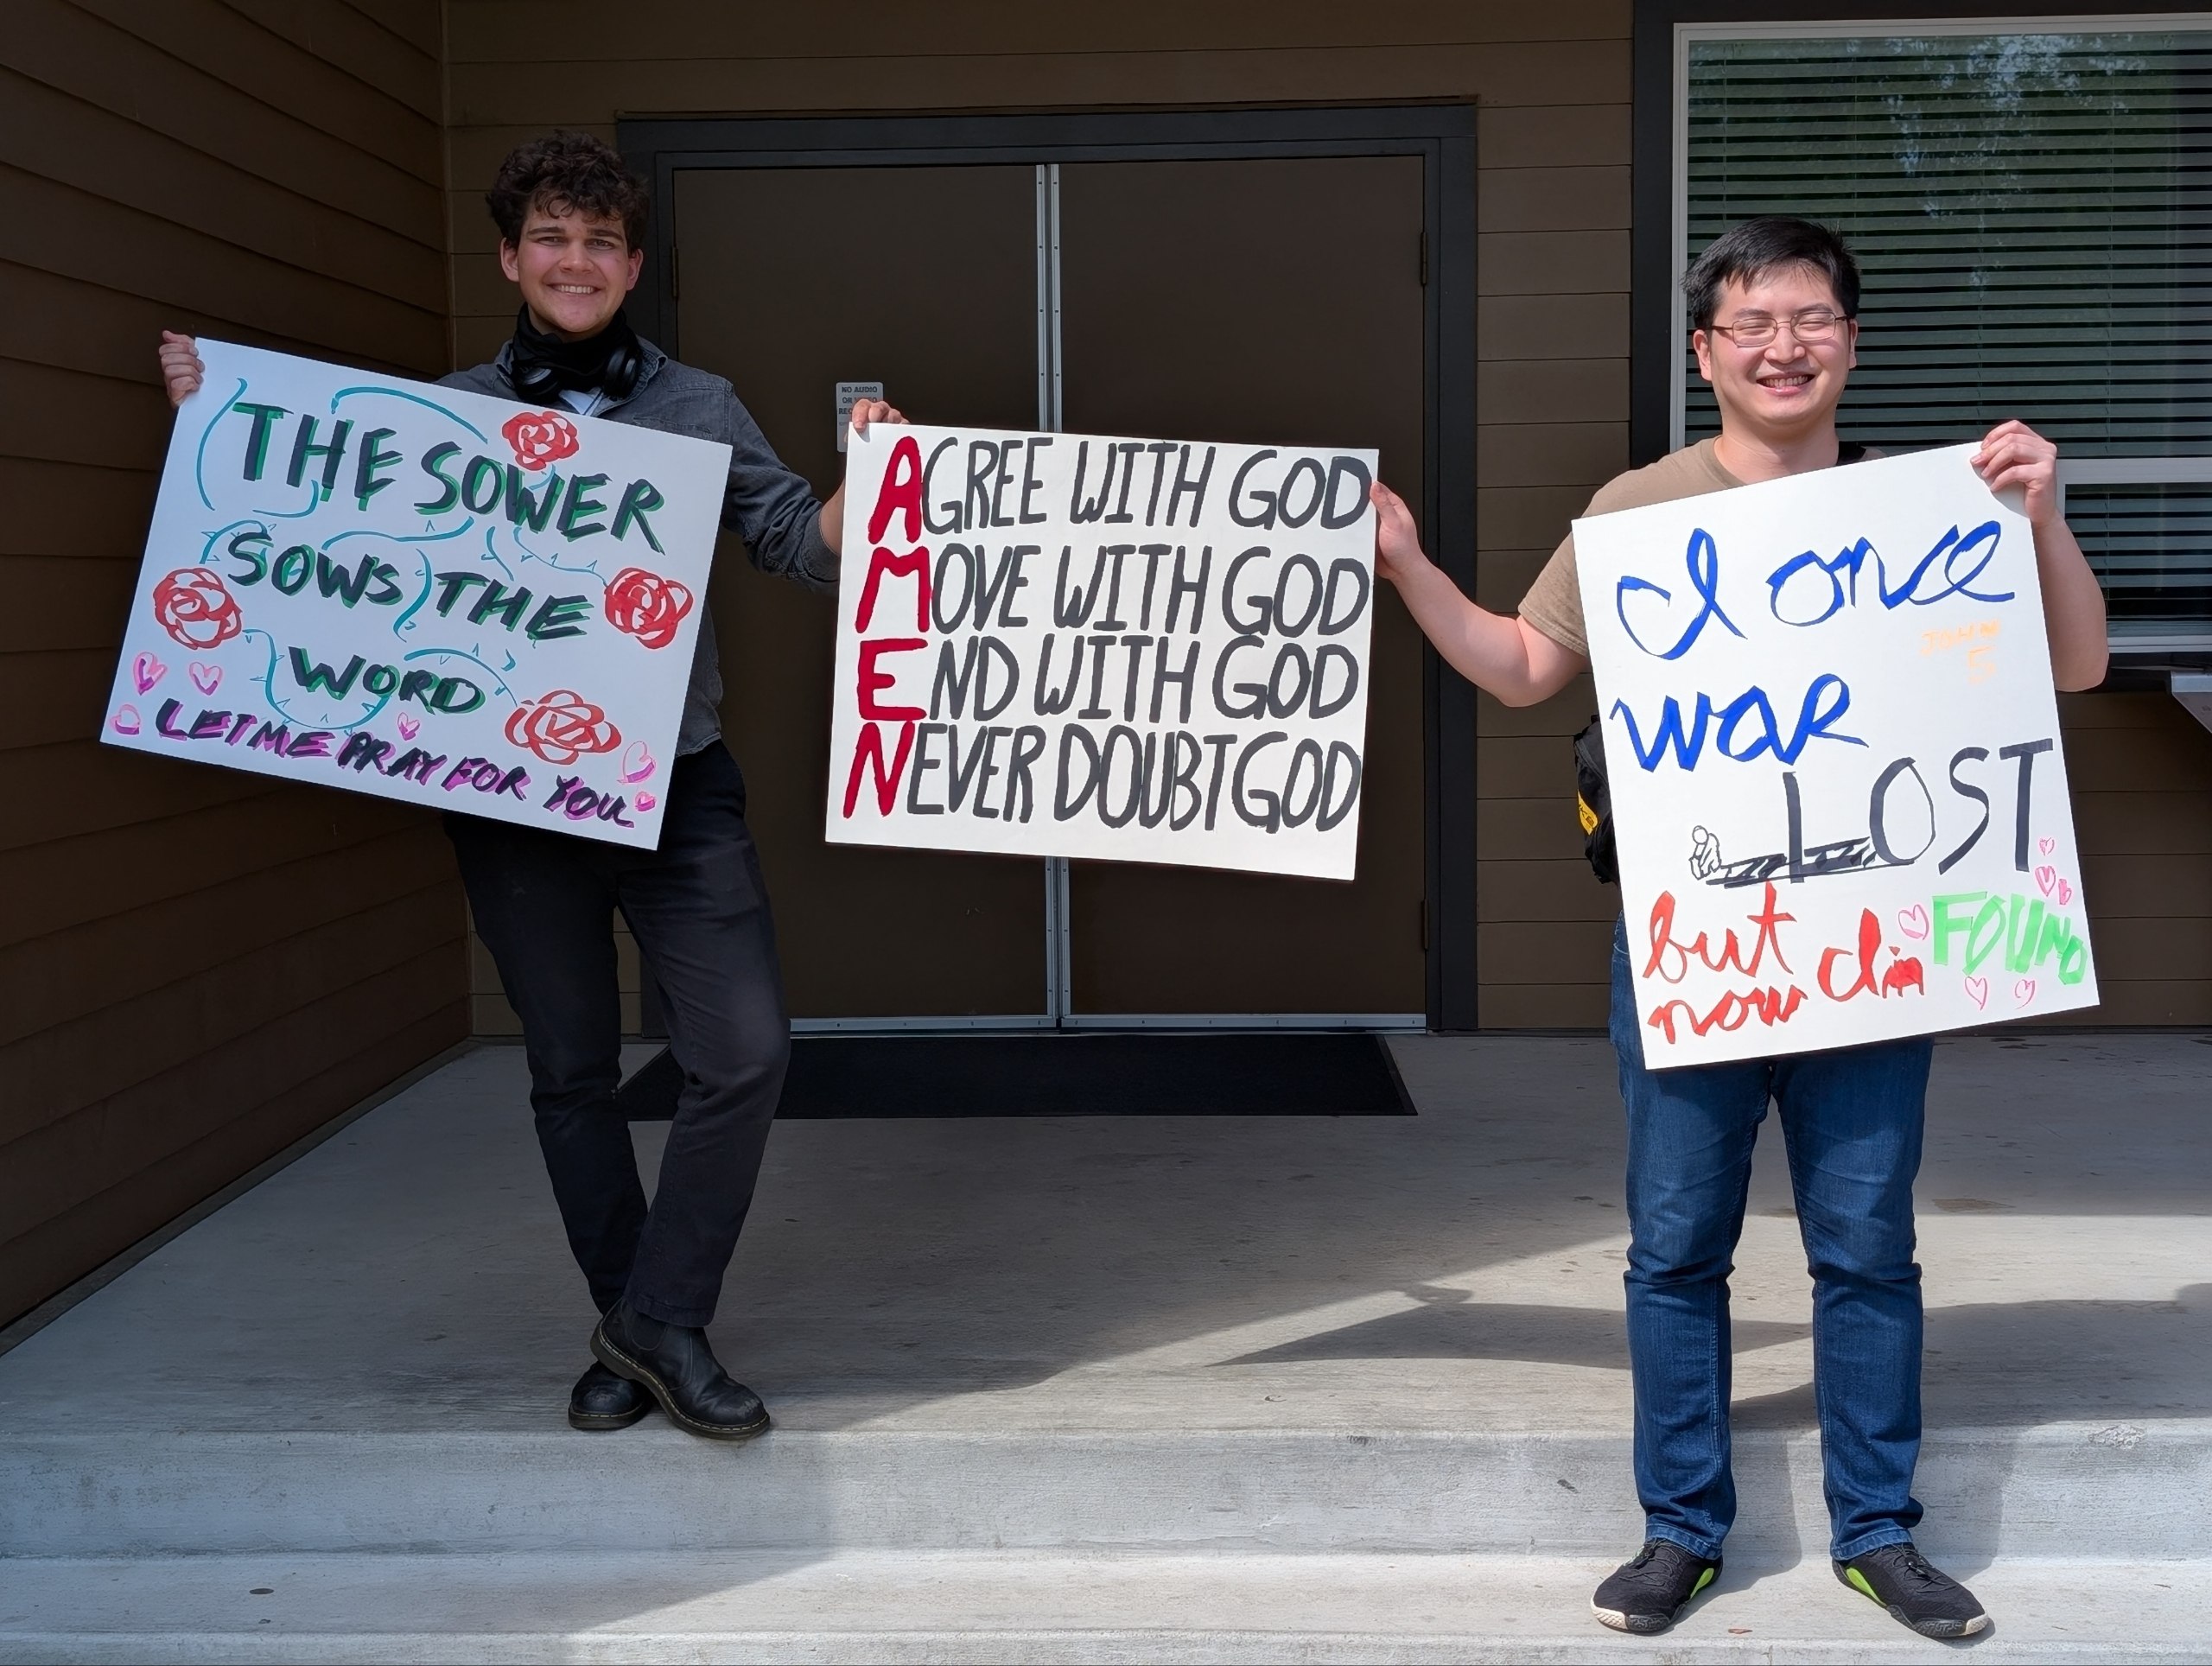 THE SOWER
SOWS THE
WORD
LET ME PRAY FOR YOU
NO AUDIO
AGREE WITH GOD
MOVE WITH GOD
END WITH GOD
NEVER DOUBT GOD
I once
was
LOST
but
now I'm FOUND